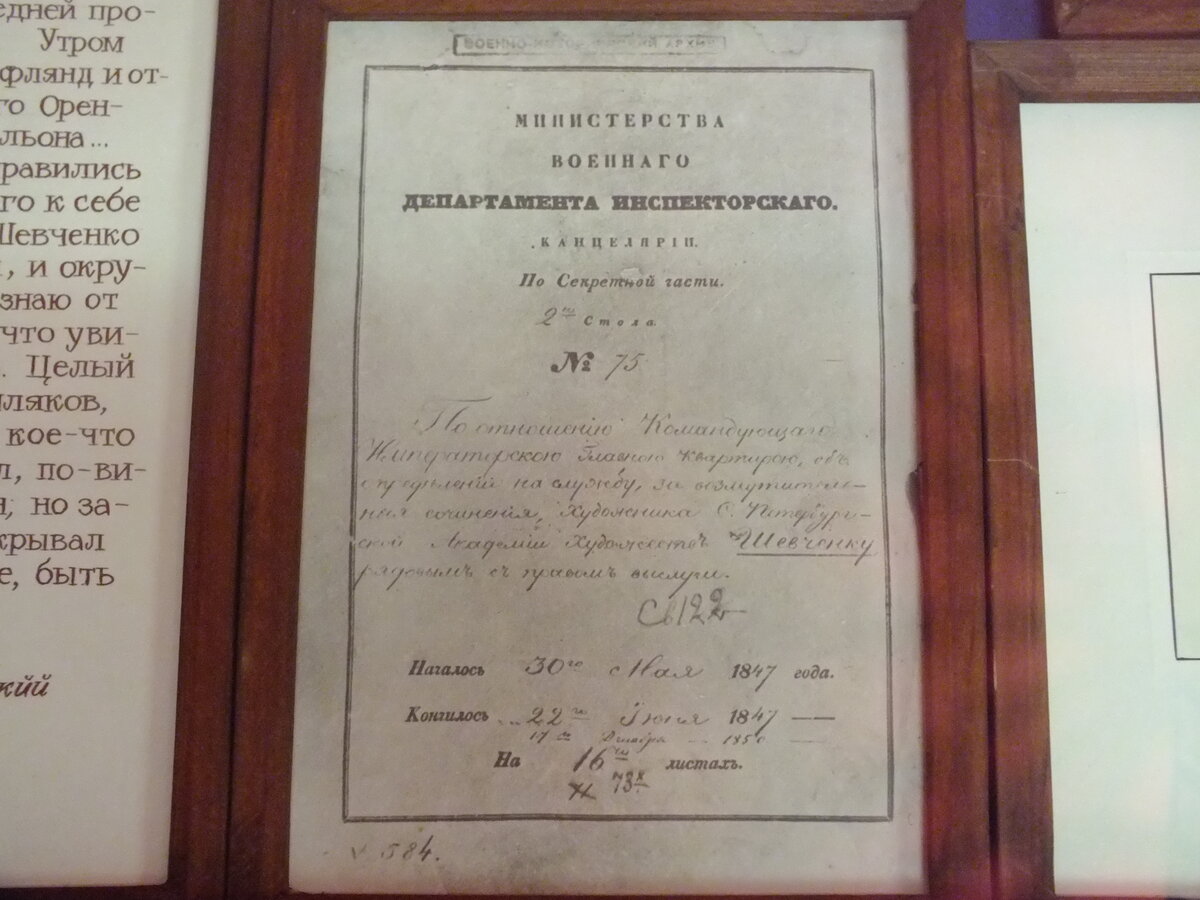 едней про-
Утром
флянд и от-
го Орен-
льона...
равились
го к себе
Шевченко
, и окру-
знаю от
что уви-
. Целый
ляков,
кое-что
л, по-ви-
; но за-
крывал
е, быть
кий
ВОЕННО-ИСТОРИЧЕСКИЙ АРХИВ
МИНИСТЕРСТВА
ВОЕННАГО
ДЕПАРТАМЕНТА ИНСПЕКТОРСКАГО.
КАНЦЕЛЯРІИ.
По Секретной части.
2го Стола.
№ 75
По отношенію Командующаго
Императорскою Главною Квартирою, объ
опредѣленіи на службу, за возмутитель-
ныя сочиненія, Художника С. Петербург-
ской Академіи Художествъ Шевченку
рядовымъ съ правомъ выслуги.
Св 122
Началось 30го Мая 1847 года.
Кончилось 22го Іюня 1847 —
17го Декабря — 1850 —
На 16ти листахъ.
73х
584.